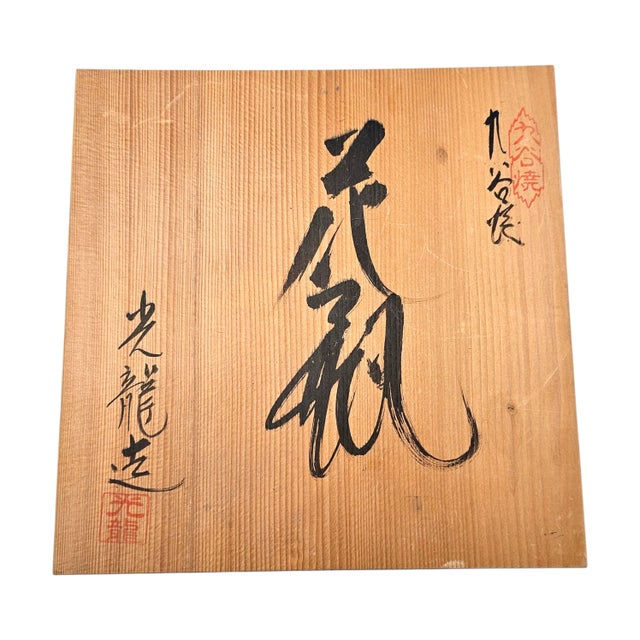 九谷焼
九谷焼
花瓶
光龍造
光龍